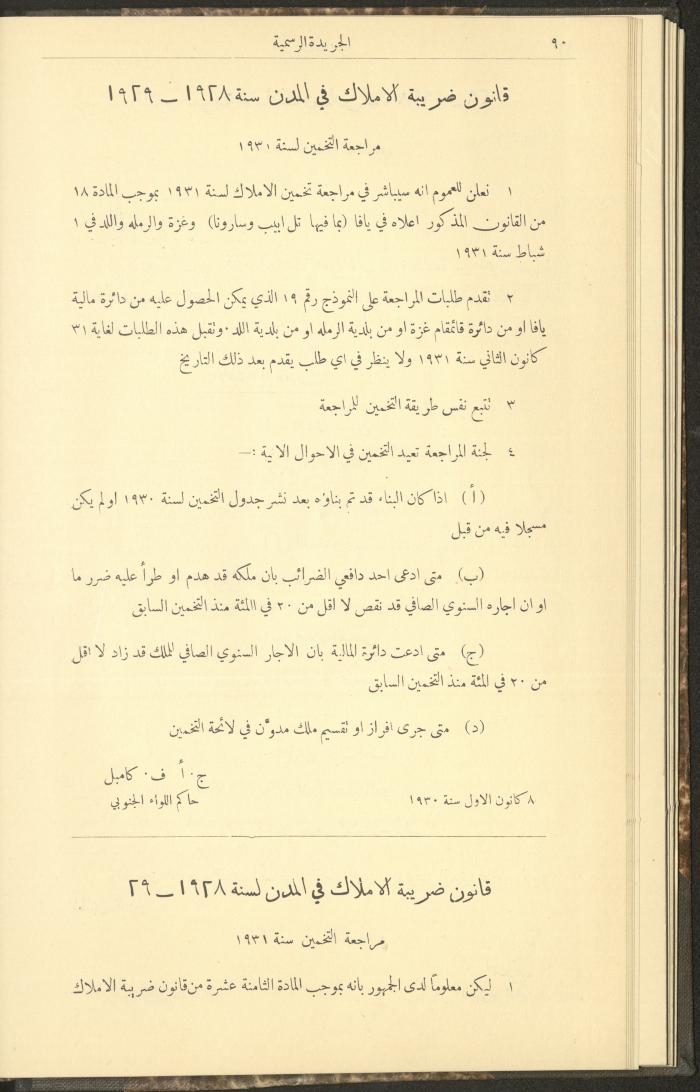 ٩٠
الجريدة الرسمية
قانون ضريبة الاملاك في المدن سنة ١٩٢٨ ـ ١٩٢٩
مراجعة التخمين لسنة ١٩٣١
١ نعلن للعموم انه سيباشر في مراجعة تخمين الاملاك لسنة ١٩٣١ بموجب المادة ١٨
من القانون المذكور اعلاه في يافا (بما فيها تل ابيب وسارونا) وغزة والرمله واللد في ١
شباط سنة ١٩٣١
٢ تقدم طلبات المراجعة على النموذج رقم ١٩ الذي يمكن الحصول عليه من دائرة مالية
يافا او من دائرة قائمقام غزة او من بلدية الرمله او من بلدية اللد٠وتقبل هذه الطلبات لغاية ٣١
كانون الثاني سنة ١٩٣١ ولا ينظر في اي طلب يقدم بعد ذلك التاريخ
٣ تتبع نفس طريقة التخمين للمراجعة
٤ لجنة المراجعة تعيد التخمين في الاحوال الاتية :—
(أ) اذا كان البناء قد تم بناؤه بعد نشر جدول التخمين لسنة ١٩٣٠ او لم يكن
مسجلا فيه من قبل
(ب) متى ادعى احد دافعي الضرائب بان ملكه قد هدم او طرأ عليه ضرر ما
او ان اجاره السنوي الصافي قد نقص لا اقل من ٢٠ في المئة منذ التخمين السابق
(ج) متى ادعت دائرة المالية بان الاجار السنوي الصافي للملك قد زاد لا اقل
من ٢٠ في المئة منذ التخمين السابق
(د) متى جرى افراز او تقسيم ملك مدوَّن في لائحة التخمين
ج٠ أ ف٠ كامبل
٨ كانون الاول سنة ١٩٣٠
حاكم اللواء الجنوبي
قانون ضريبة الاملاك في المدن لسنة ١٩٢٨ ـ ٢٩
مراجعة التخمين سنة ١٩٣١
١ ليكن معلوماً لدى الجمهور بانه بموجب المادة الثامنة عشرة من قانون ضريبة الاملاك